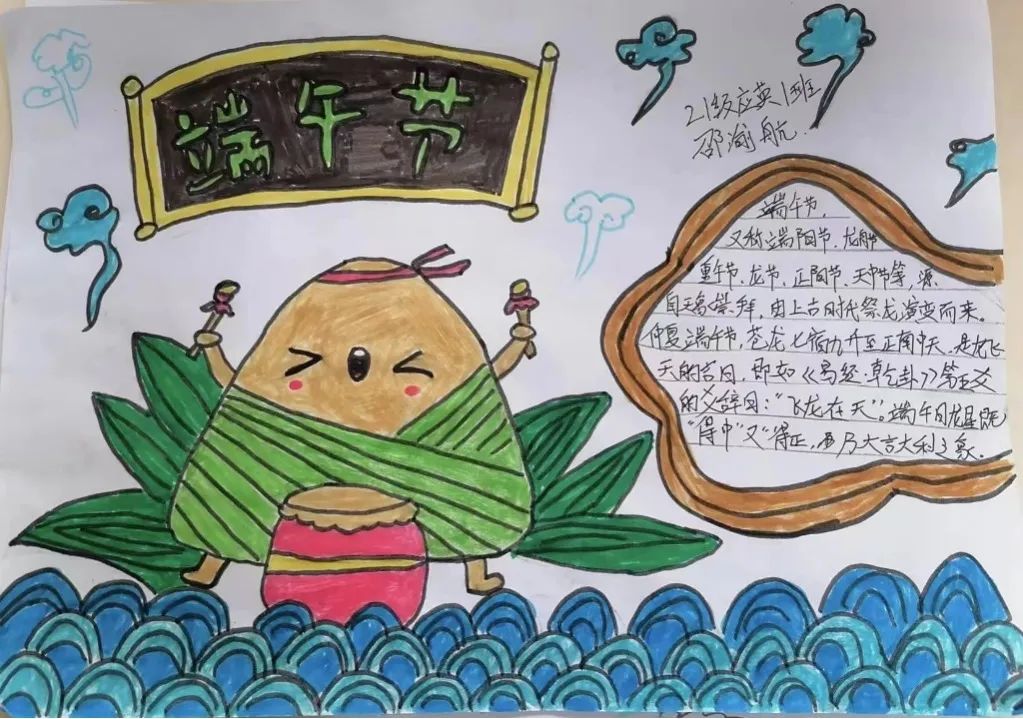 端午节
21级应英1班
邵渝航
端午节,
又称端阳节、龙舟节
重午节、龙节、正阳节、天中节等,源
自天象崇拜,由上古时代祭龙演变而来。
仲夏端午节,苍龙七宿九升至正南中天,是龙飞
天的吉日,即如《易经·乾卦》第五爻
的爻辞曰:“飞龙在天”。端午日龙星既
“得中”又“得正”,乃大吉大利之象。